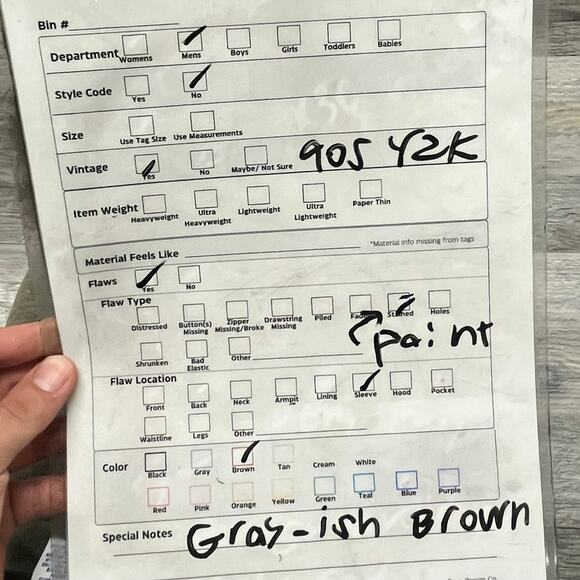 Bin #
Department Womens Mens Boys Girls Toddlers Babies
Style Code Yes No
Size Use Tag Size Use Measurements
Vintage Yes No Maybe/ Not Sure 90s Y2K
Item Weight Heavyweight Ultra Heavyweight Lightweight Ultra Lightweight Paper Thin
Material Feels Like *Material info missing from tags
Flaws Yes No
Flaw Type
Distressed Button(s) Missing Zipper Missing/Broke Drawstring Missing Piled Faded Stained Holes
paint
Shrunken Bad Elastic Other
Flaw Location
Front Back Neck Armpit Lining Sleeve Hood Pocket
Waistline Legs Other
Color Black Gray Brown Tan Cream White
Red Pink Orange Yellow Green Teal Blue Purple
Special Notes Gray-ish Brown